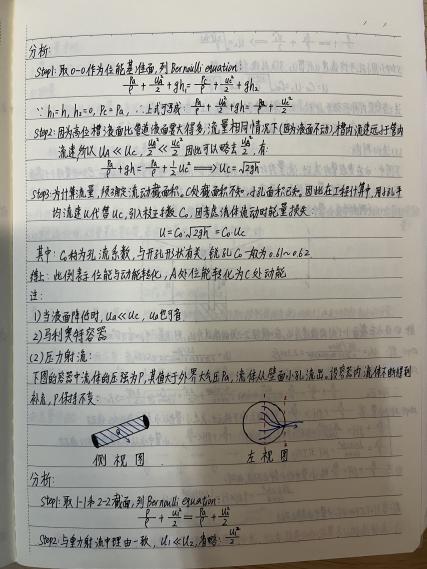 分析:
Step1: 取0-0作为位能基准面,列Bernoulli equation:
Pa/ρ + ua²/2 + gh₁ = Pc/ρ + uc²/2 + gh₂
∵ h₁=h, h₂=0, Pc=Pa, ∴上式可写成: Pa/ρ + ua²/2 + gh = Pa/ρ + uc²/2
Step2: 因为高位槽液面比管道液面要大得多,流量相同情况下(因为液面不动),槽内流速远小于管内
流速,所以 UA ≪ Uc, ua²/2 ≪ uc²/2 因此可以略去 ua²/2, 有:
Pa/ρ + gh = Pa/ρ + 1/2 uc² ⟹ Uc = √2gh
Step3: 为计算流量,须确定流动截面积。C处截面积不知,小孔面积已知。因此在工程计算中,用小孔平
均流速U代替Uc,引入校正系数C₀,同考虑流体流动时能量损失:
U = C₀·√2gh = C₀Uc
其中: C₀称为孔流系数,与开孔形状有关,锐孔C₀一般为0.61~0.62
综上: 此例表示位能与动能转化,A处位能转化为C处动能
注:
1) 当液面降低时, ua≪uc, u₀也可省
2) 马利奥特容器
(2) 压力射流:
下图的容器中流体的压强为P,其值大于外界大气压Pa,流体从壁面小孔流出。设容器内流体不断得到
补充,P保持不变:
侧 视 图 左 视 图
分析:
Step1: 取1-1和2-2截面,列Bernoulli equation:
P/ρ + u₁²/2 = Pa/ρ + u₂²/2
Step2: 与重力射流中理由一致, U₁≪U₂,省略: u₁²/2